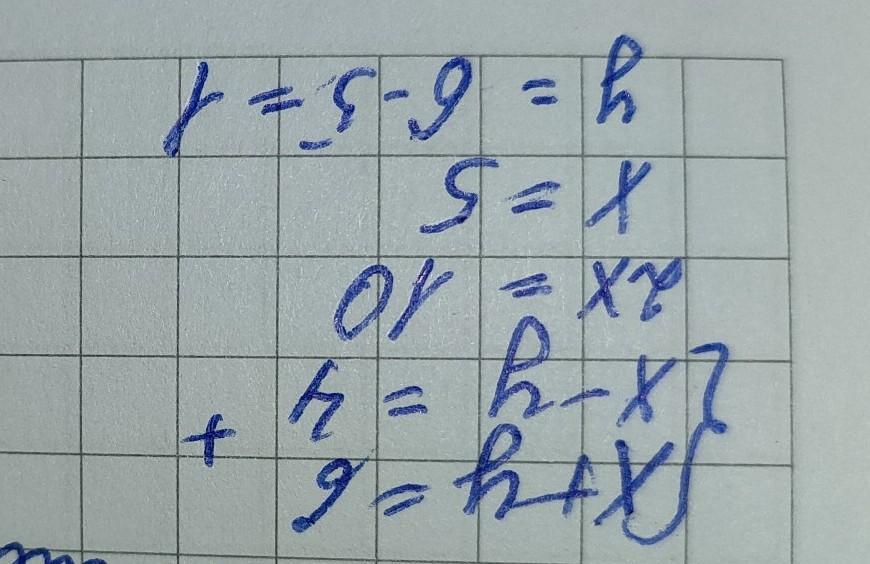 {x+y=6
x-y=4 +
2x = 10
x = 5
y = 6-5=1